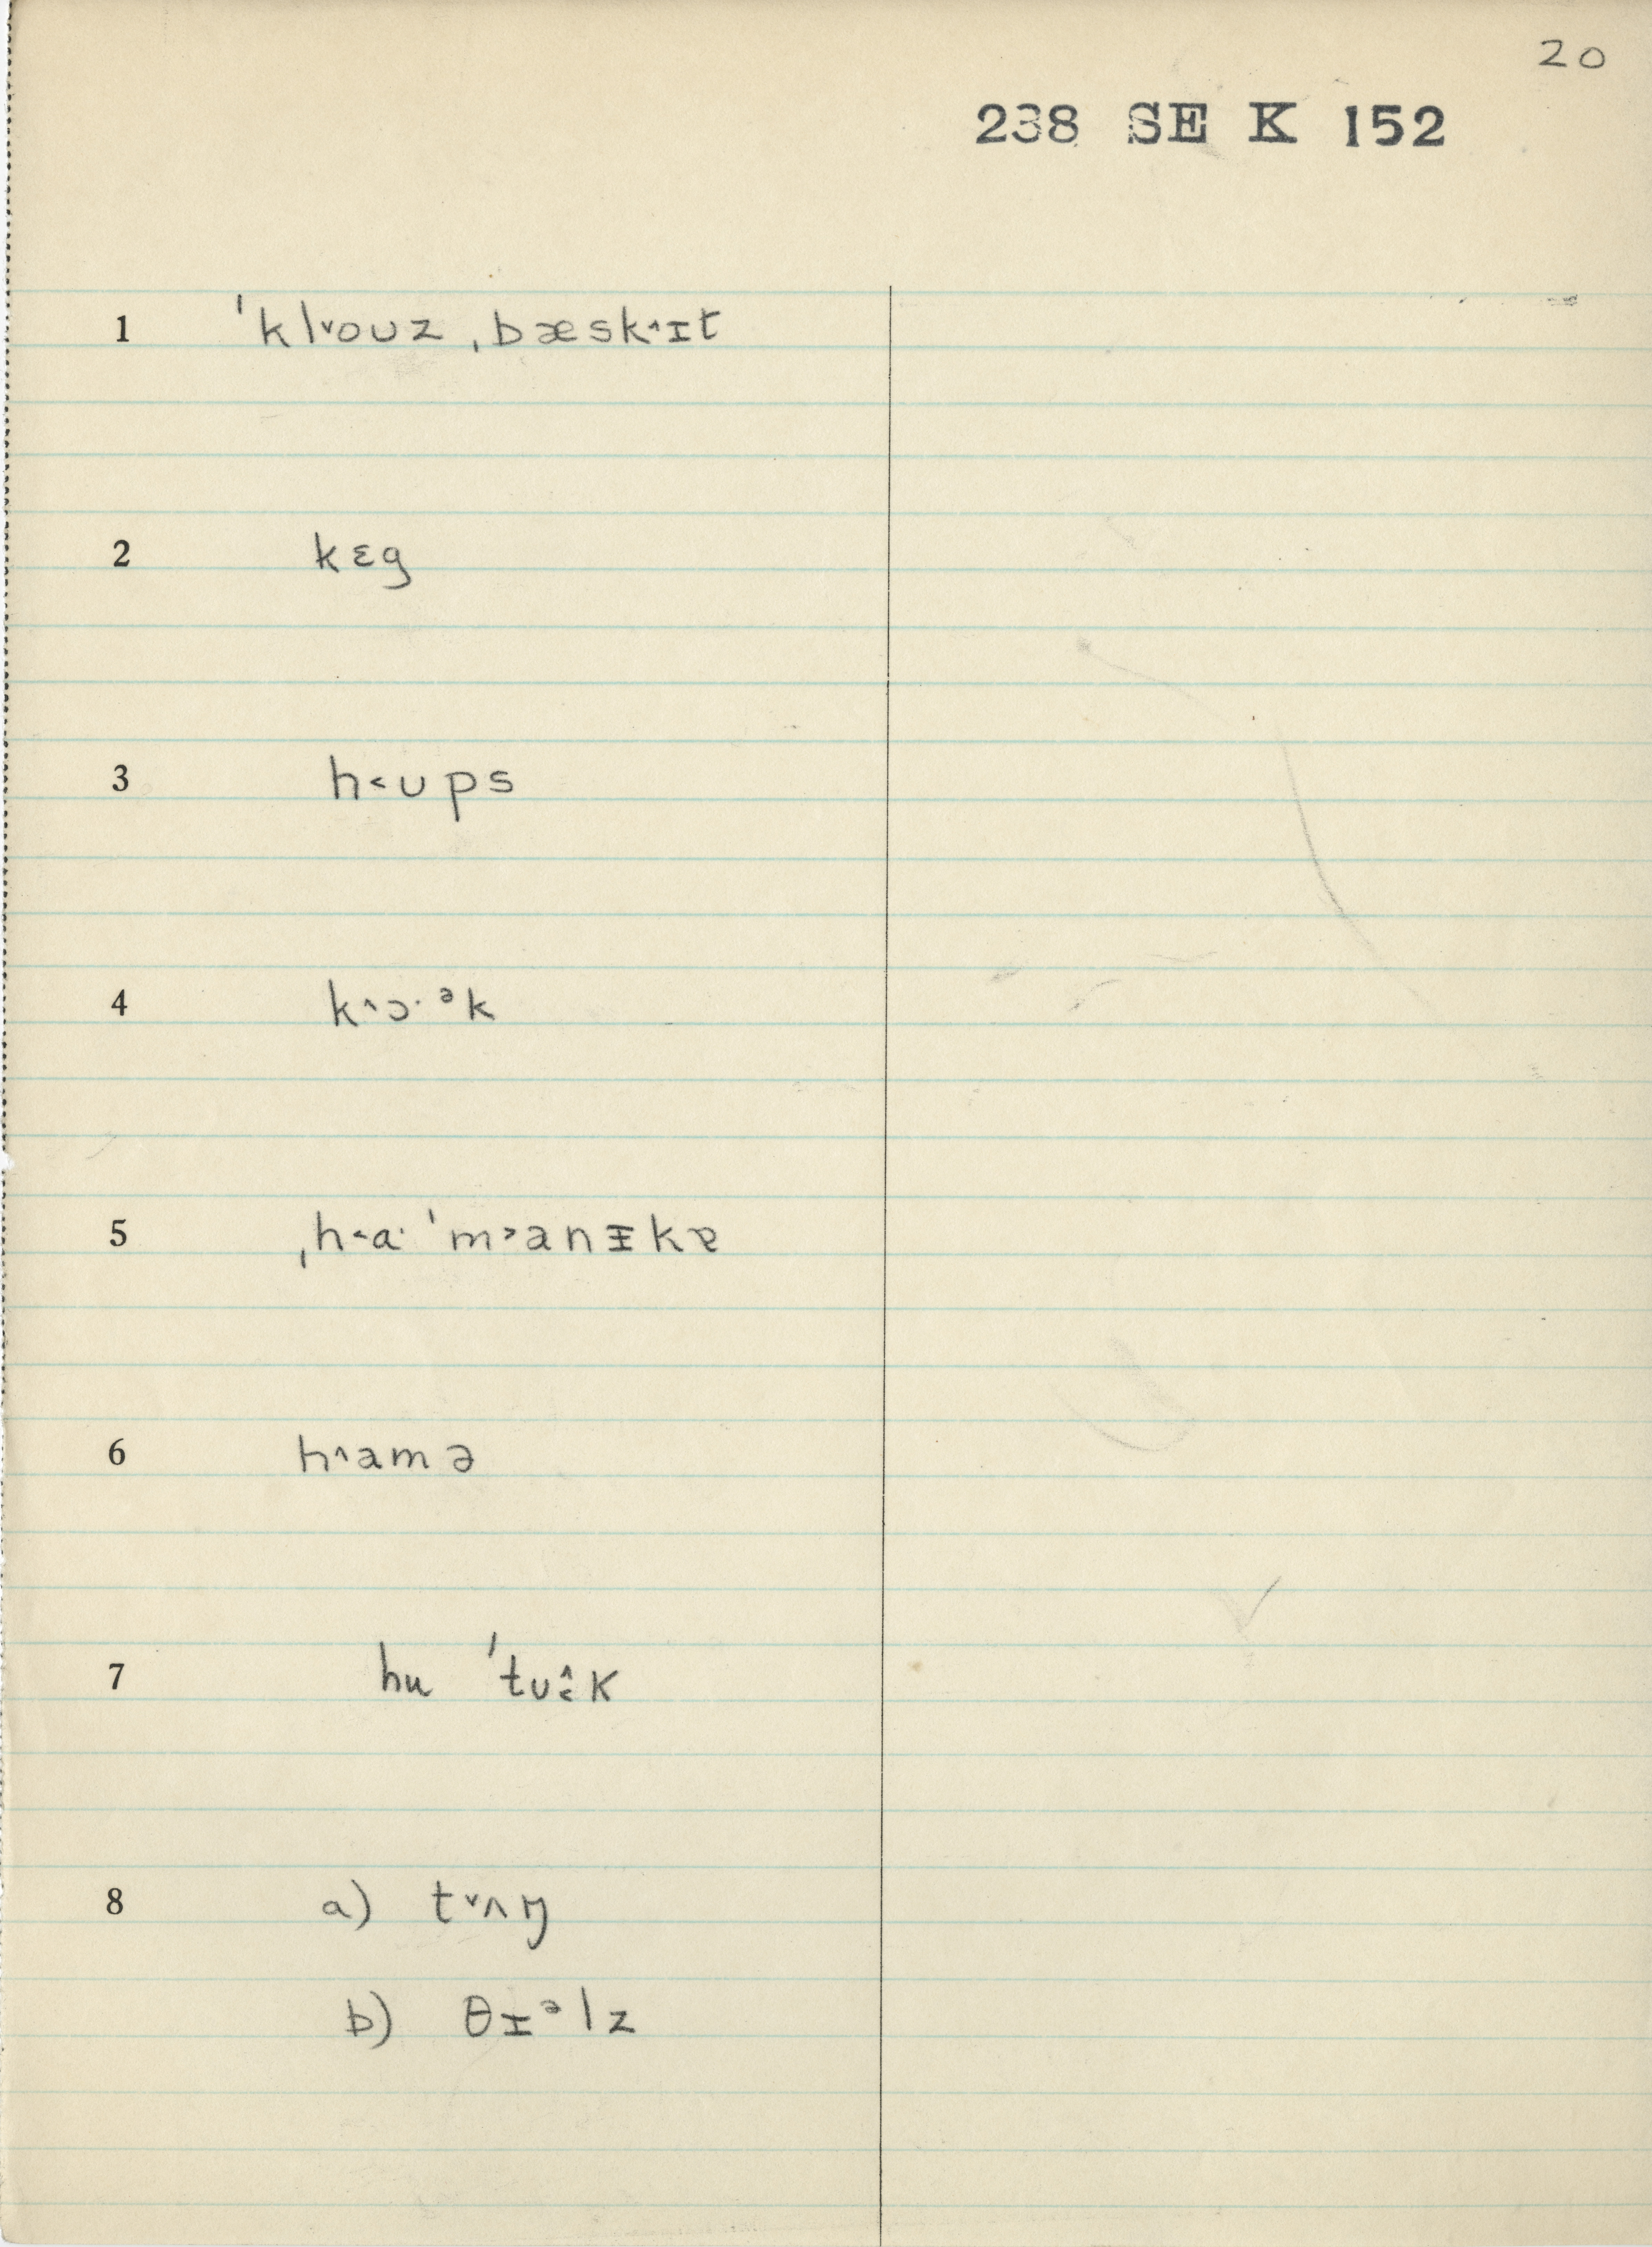 20
238 SE K 152
1 ˈkl˅oʊz ˌbæsk˄ɪt
2 kɛg
3 h˂ʊps
4 k˄ɔ·ᵊk
5 ˌh˂ɑ· ˈm˃anɪ̵kɐ
6 h˄amə
7 hu ˈtʊ˄˂k
8 a) t˅ʌŋ
b) θɪᵊlz